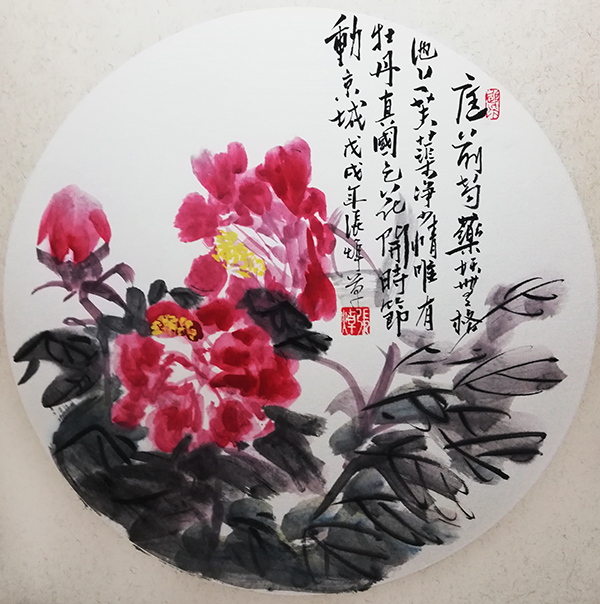 庭前芍藥妖無格
池上芙蕖净少情唯有
牡丹真國色花開時節
動京城戊戌年張焯草